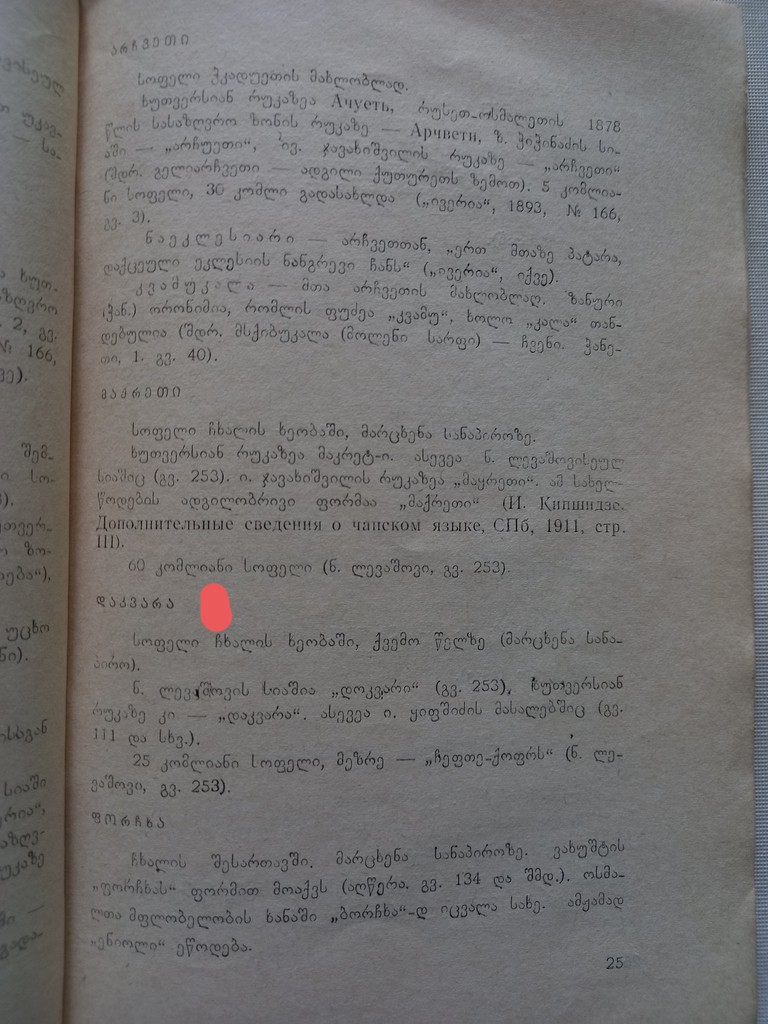 არჩვეთი
სოფელი ჭკადუეთის მახლობლად.
ხუთვერსიან რუკაზეა Ачуеть, რუსეთ-ოსმალეთის 1878
წლის სასაზღვრო ზონის რუკაზე — Арчвети, ზ. ჭიჭინაძის სი-
აში — „არჩუეთი“, ივ. ჯავახიშვილის რუკაზე — „არჩვეთი“
(შდრ. გელიარჩვეთი — ადგილი ქუთურეთს ზემოთ). 5 კომლია-
ნი სოფელი, 30 კომლი გადასახლდა („ივერია“, 1893, № 166,
გვ. 3).
ნაეკლესიარი — არჩვეთთან, „ერთ მთაზე პატარა,
დაქცეული ეკლესიის ნანგრევი ჩანს“ („ივერია“, იქვე).
კვამუკალა — მთა არჩვეთის მახლობლად. ზანური
(ჭან.) ორონიმია, რომლის ფუძეა „კვამუ“, ხოლო „კალა“ თან-
დებულია (შდრ. მსქიბუკალა (მოლენი სარფი) — ჩვენი. ჭანე-
თი, 1. გვ. 40).
მაკრეთი
სოფელი ჩხალის ხეობაში, მარცხენა სანაპიროზე.
ხუთვერსიან რუკაზეა მაკრეტ-ი. ასევეა ნ. ლევაშოვისეულ
სიაშიც (გვ. 253). ი. ჯავახიშვილის რუკაზეა „მაყრეთი“. ამ სახელ-
წოდების ადგილობრივი ფორმაა „მაქრეთი“ (И. Кипшидзе.
Дополнительные сведения о чанском языке, СПб, 1911, стр.
III).
60 კომლიანი სოფელი (ნ. ლევაშოვი, გვ. 253).
დაკვარა
სოფელი ჩხალის ხეობაში, ქვემო წელზე (მარცხენა სანა-
პირო).
ნ. ლევაშოვის სიაშია „დოკვარი“ (გვ. 253), ხუთვერსიან
რუკაზე კი — „დაკვარა“. ასევეა ი. ყიფშიძის მასალებშიც (გვ.
III და სხვ.).
25 კომლიანი სოფელი, მეზრე — „ჩეფთე-ქოფრს“ (ნ. ლე-
ვაშოვი, გვ. 253).
ფორჩხა
ჩხალის შესართავში. მარცხენა სანაპიროზე. ვახუშტის
„ფორჩხას“ ფორმით მოაქვს (აღწერა. გვ. 134 და შმდ.). ოსმა-
ლთა მფლობელობის ხანაში „ბორჩხა“-დ იცვალა სახე. ამჟამად
„ენიოლი“ ეწოდება.
25